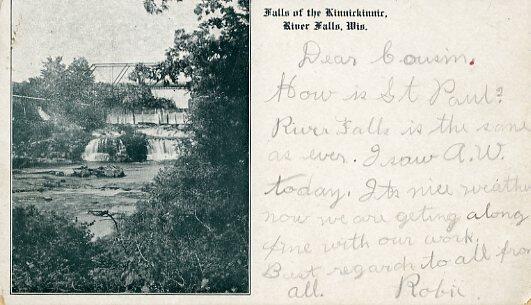 Falls of the Kinnickinnic,
River Falls, Wis.
Dear Cousin.
How is St Paul?
River Falls is the same
as ever. I saw A.W.
today. Its nice weather
now we are geting along
fine with our work.
Best regard to all from
all. Robie